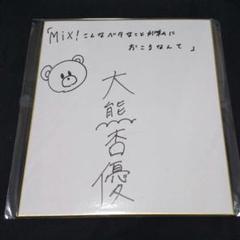 「MiX!こんなベタなことが私に
おこるなんて」
大熊杏優